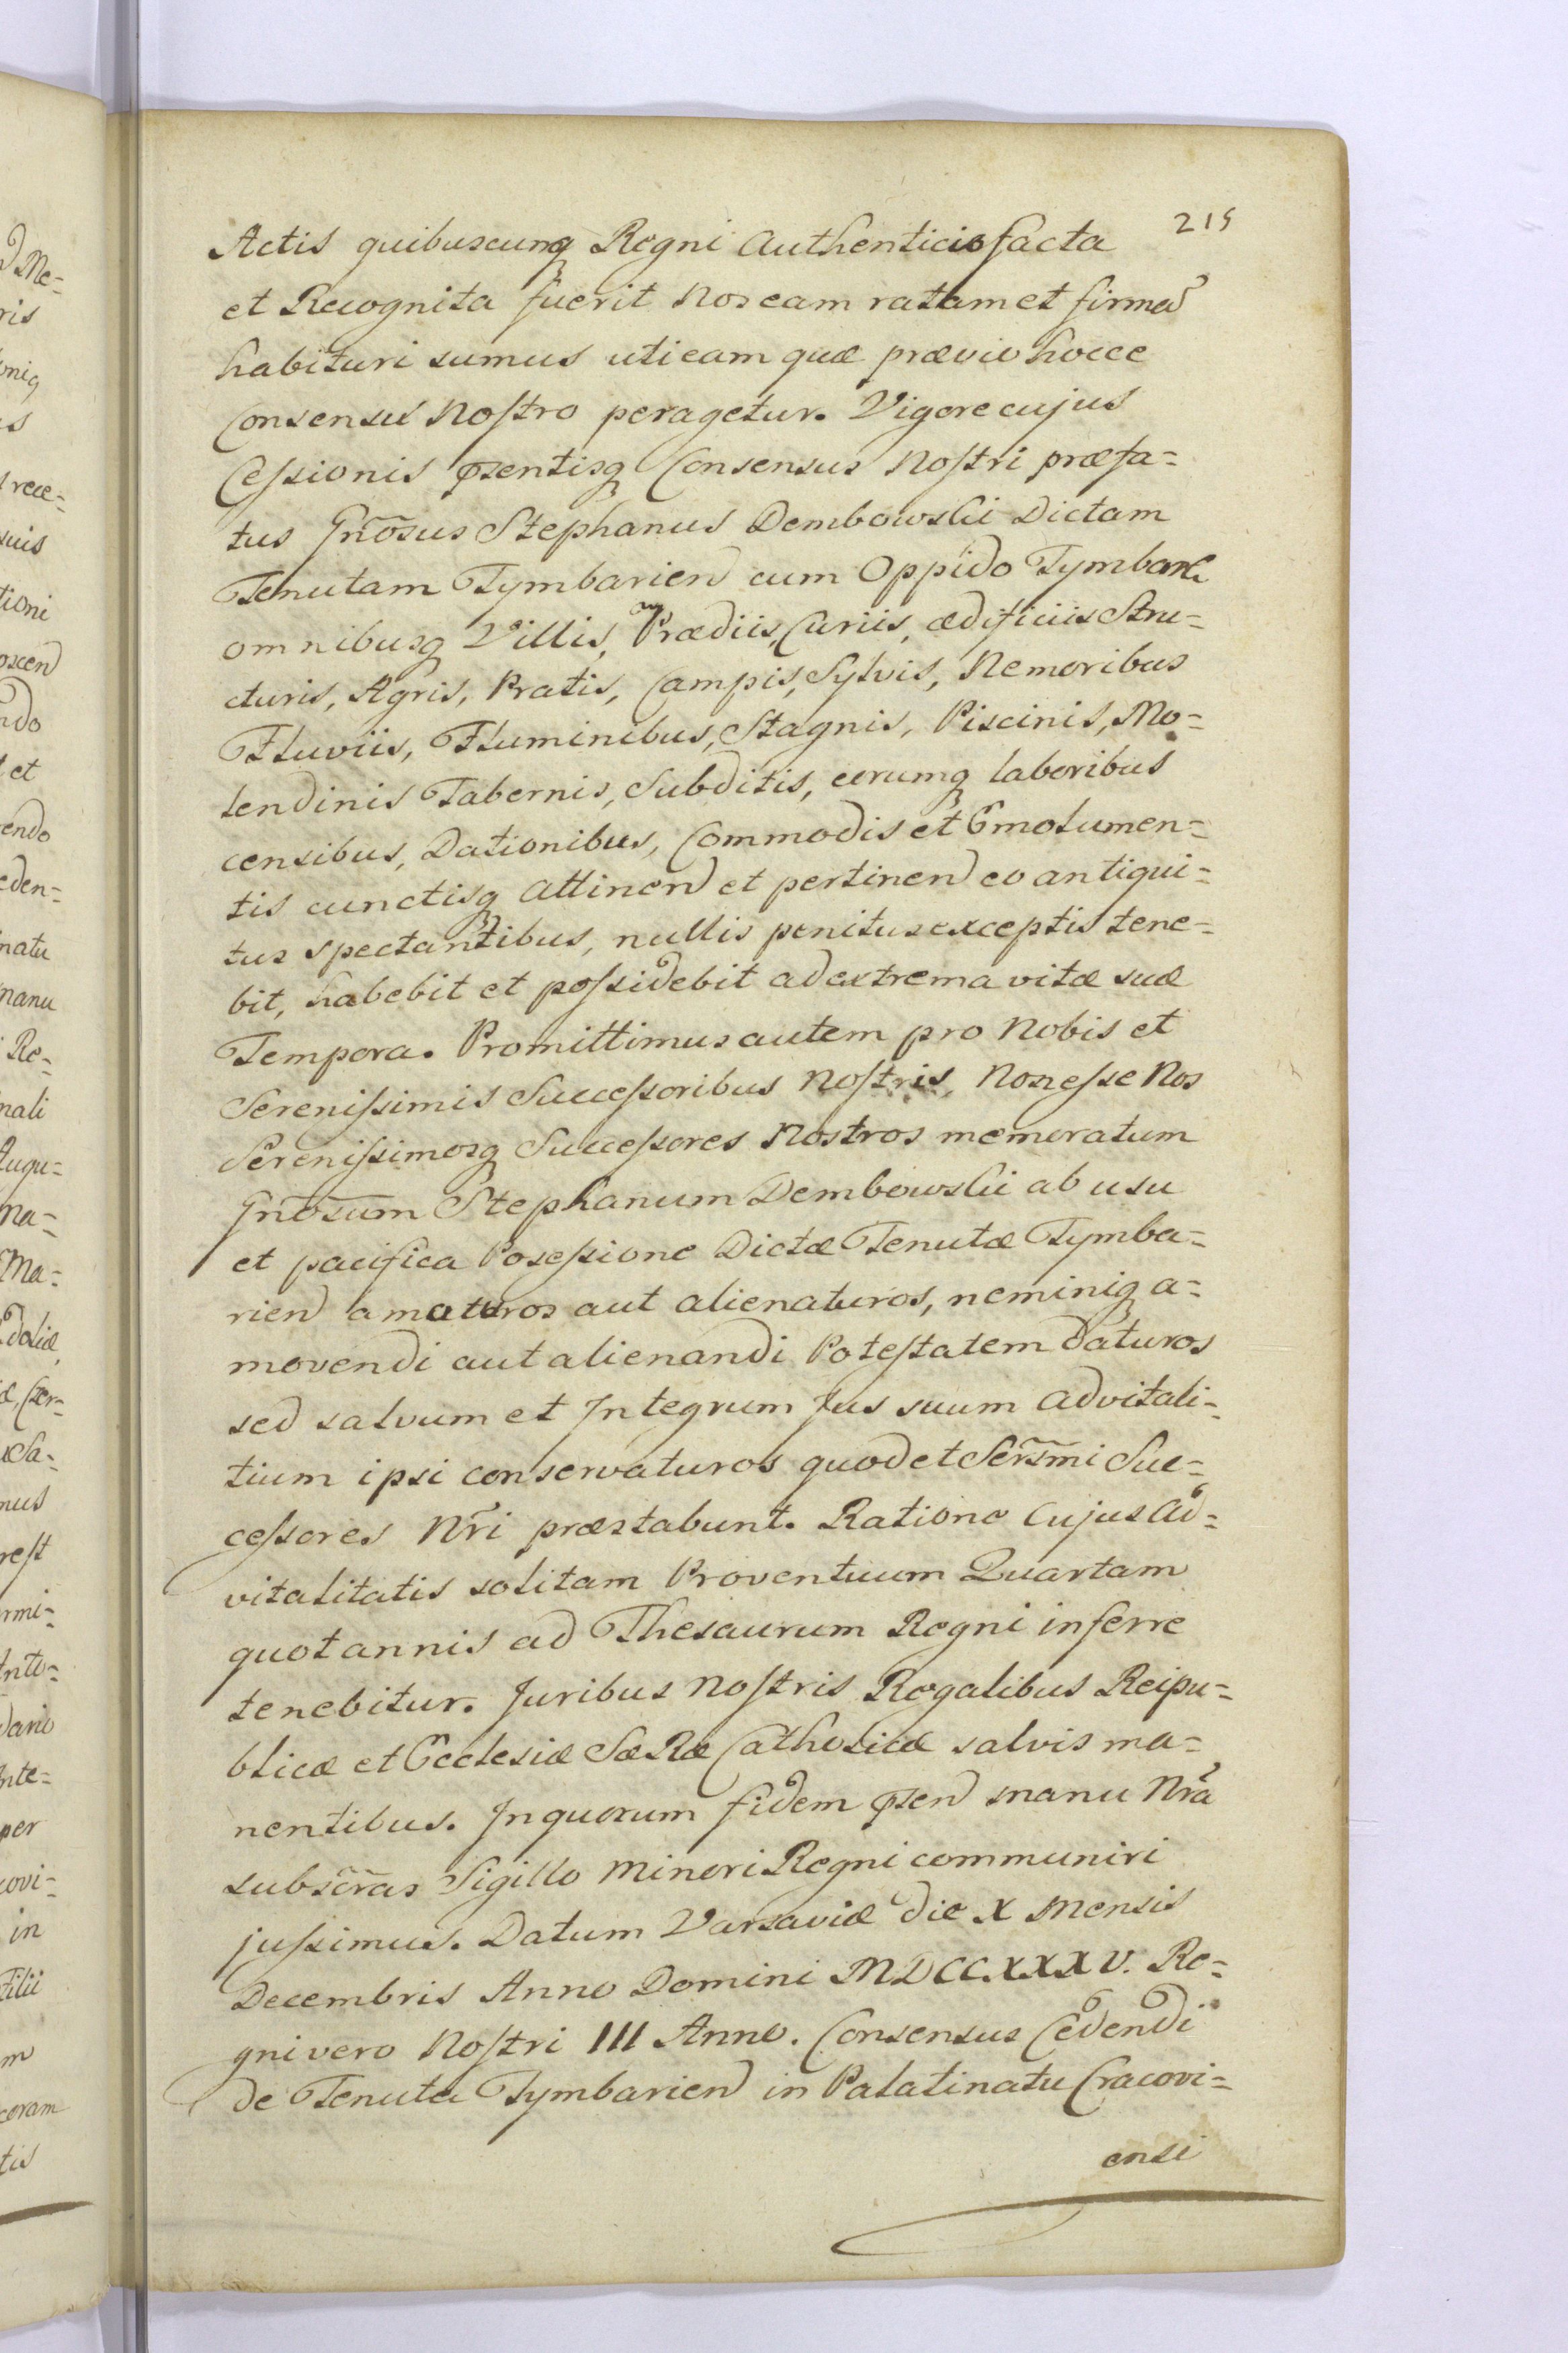 215
Actis quibuscunq Regni Authenticis facta
et Recognita fuerit nos eam ratam et firmã
habituri sumus uti eam quæ prævio hocce
Consensu Nostro peragetur. Vigore cujus
Cessionis pſsentisq Consensus Nostri præfa=
tus Gñosus Stephanus Dembowski Dictam
Tenutam Tymbarien cum Oppido Tymbark
omnibusq Villis, Prædiis, Curiis, ædificiis Stru=
cturis, Agris, Pratis, Campis, Sylvis, Nemoribus
Fluviis, Fluminibus, Stagnis, Piscinis, Mo=
lendinis Tabernis, Subditis, eorumq laboribus
censibus, Dationibus, Commodis et Emolumen=
tis cunctisq attinen et pertinen eo antiqui=
tus spectantibus, nullis penitus exceptis tene=
bit, habebit et possidebit ad extrema vitæ suæ
Tempora. Promittimus autem pro Nobis et
Serenissimis Successoribus Nostris, Non esse Nos
Serenissimosq Successores Nostros memoratum
Gñosum Stephanum Dembowski ab usu
et pacifica Posessione Dictæ Tenutæ Tymba=
rien amoturos aut alienaturos, neminiq a=
movendi aut alienandi Potestatem daturos
sed salvum et Integrum Jus suum advitali=
tium ipsi conservaturos quod et Serm̃i Suc=
cessores Nr̃i præstabunt. Ratione cujus ad=
vitalitatis solitam Proventuum Quartam
quotannis ad Thesaurum Regni inferre
tenebitur. Juribus Nostris Regalibus Reipu=
blicæ et Ecclesiæ SæRæ Catholicæ salvis ma=
nentibus. In quorum fidem pſsen manu Nr̃a
subscr̃as Sigillo Minori Regni communiri
jussimus. Datum Varsaviæ die X Mensis
Decembris Anno Domini MDCCXXXV. Re=
gni vero Nostri III Anno. Consensus Cedendi
de Tenuta Tymbarien in Palatinatu Cracovi=
ensi